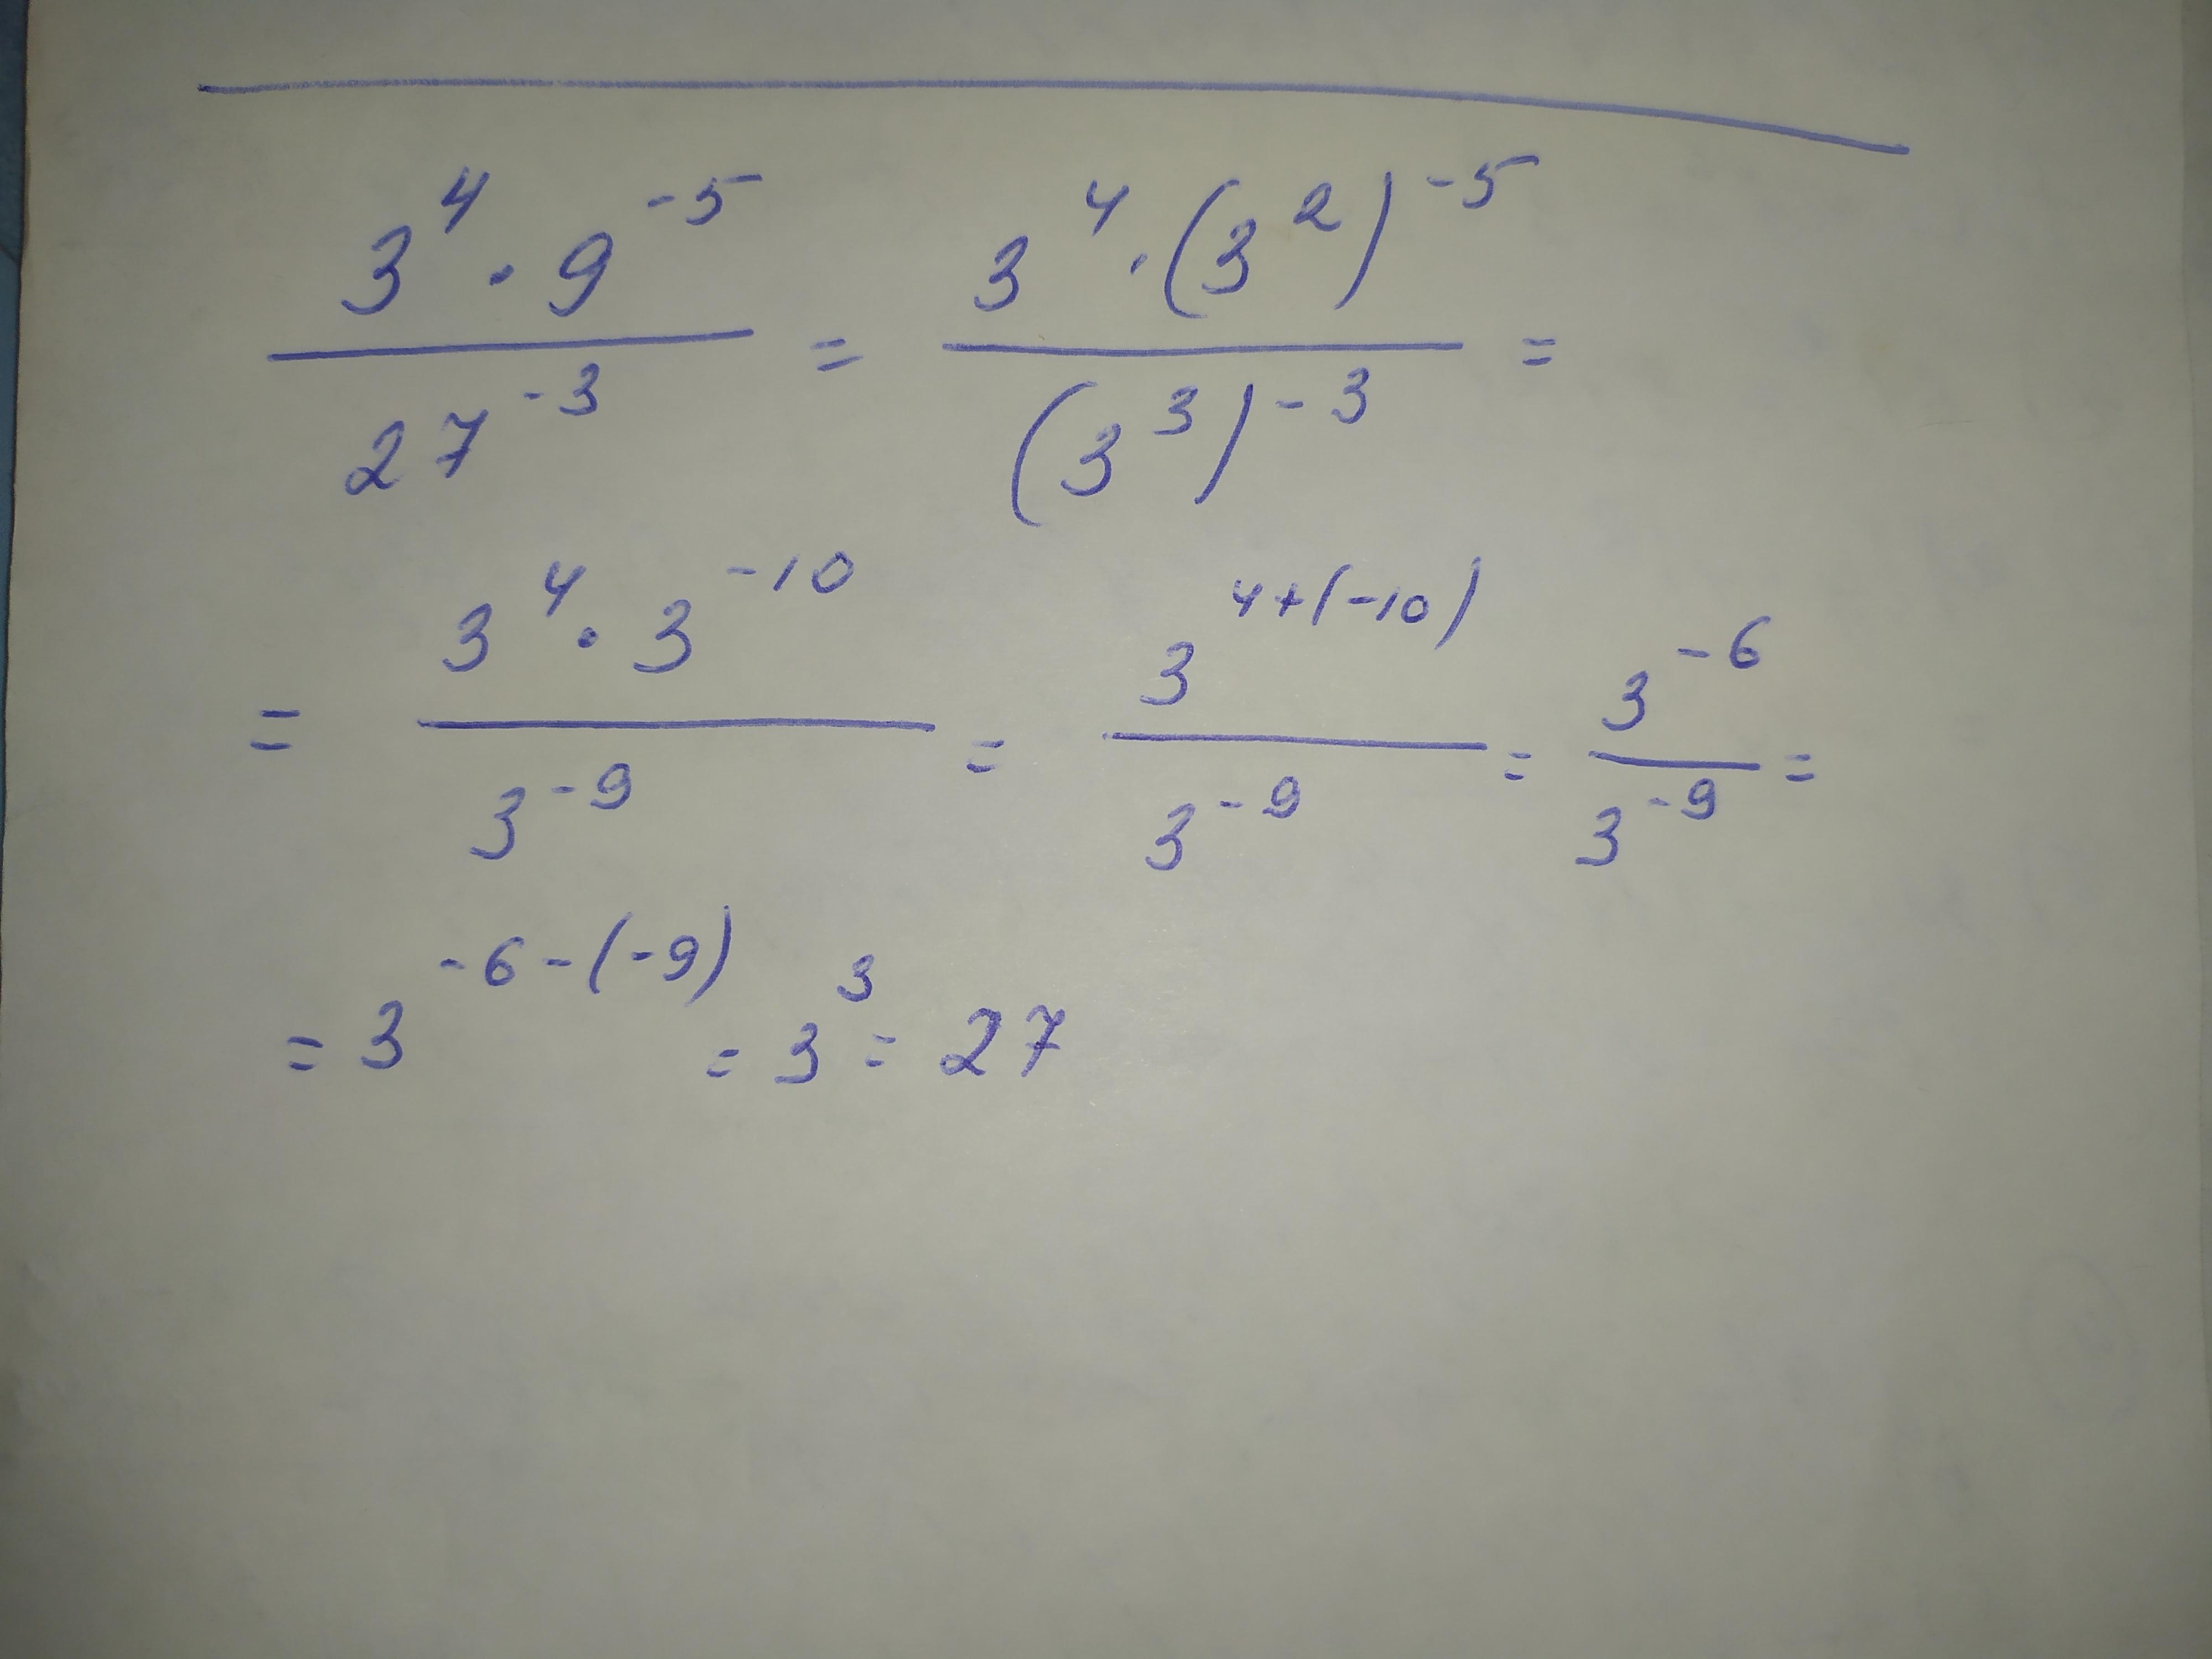 \frac{3^4 \cdot 9^{-5}}{27^{-3}} = \frac{3^4 \cdot (3^2)^{-5}}{(3^3)^{-3}} =
= \frac{3^4 \cdot 3^{-10}}{3^{-9}} = \frac{3^{4+(-10)}}{3^{-9}} = \frac{3^{-6}}{3^{-9}} =
= 3^{-6-(-9)} = 3^3 = 27